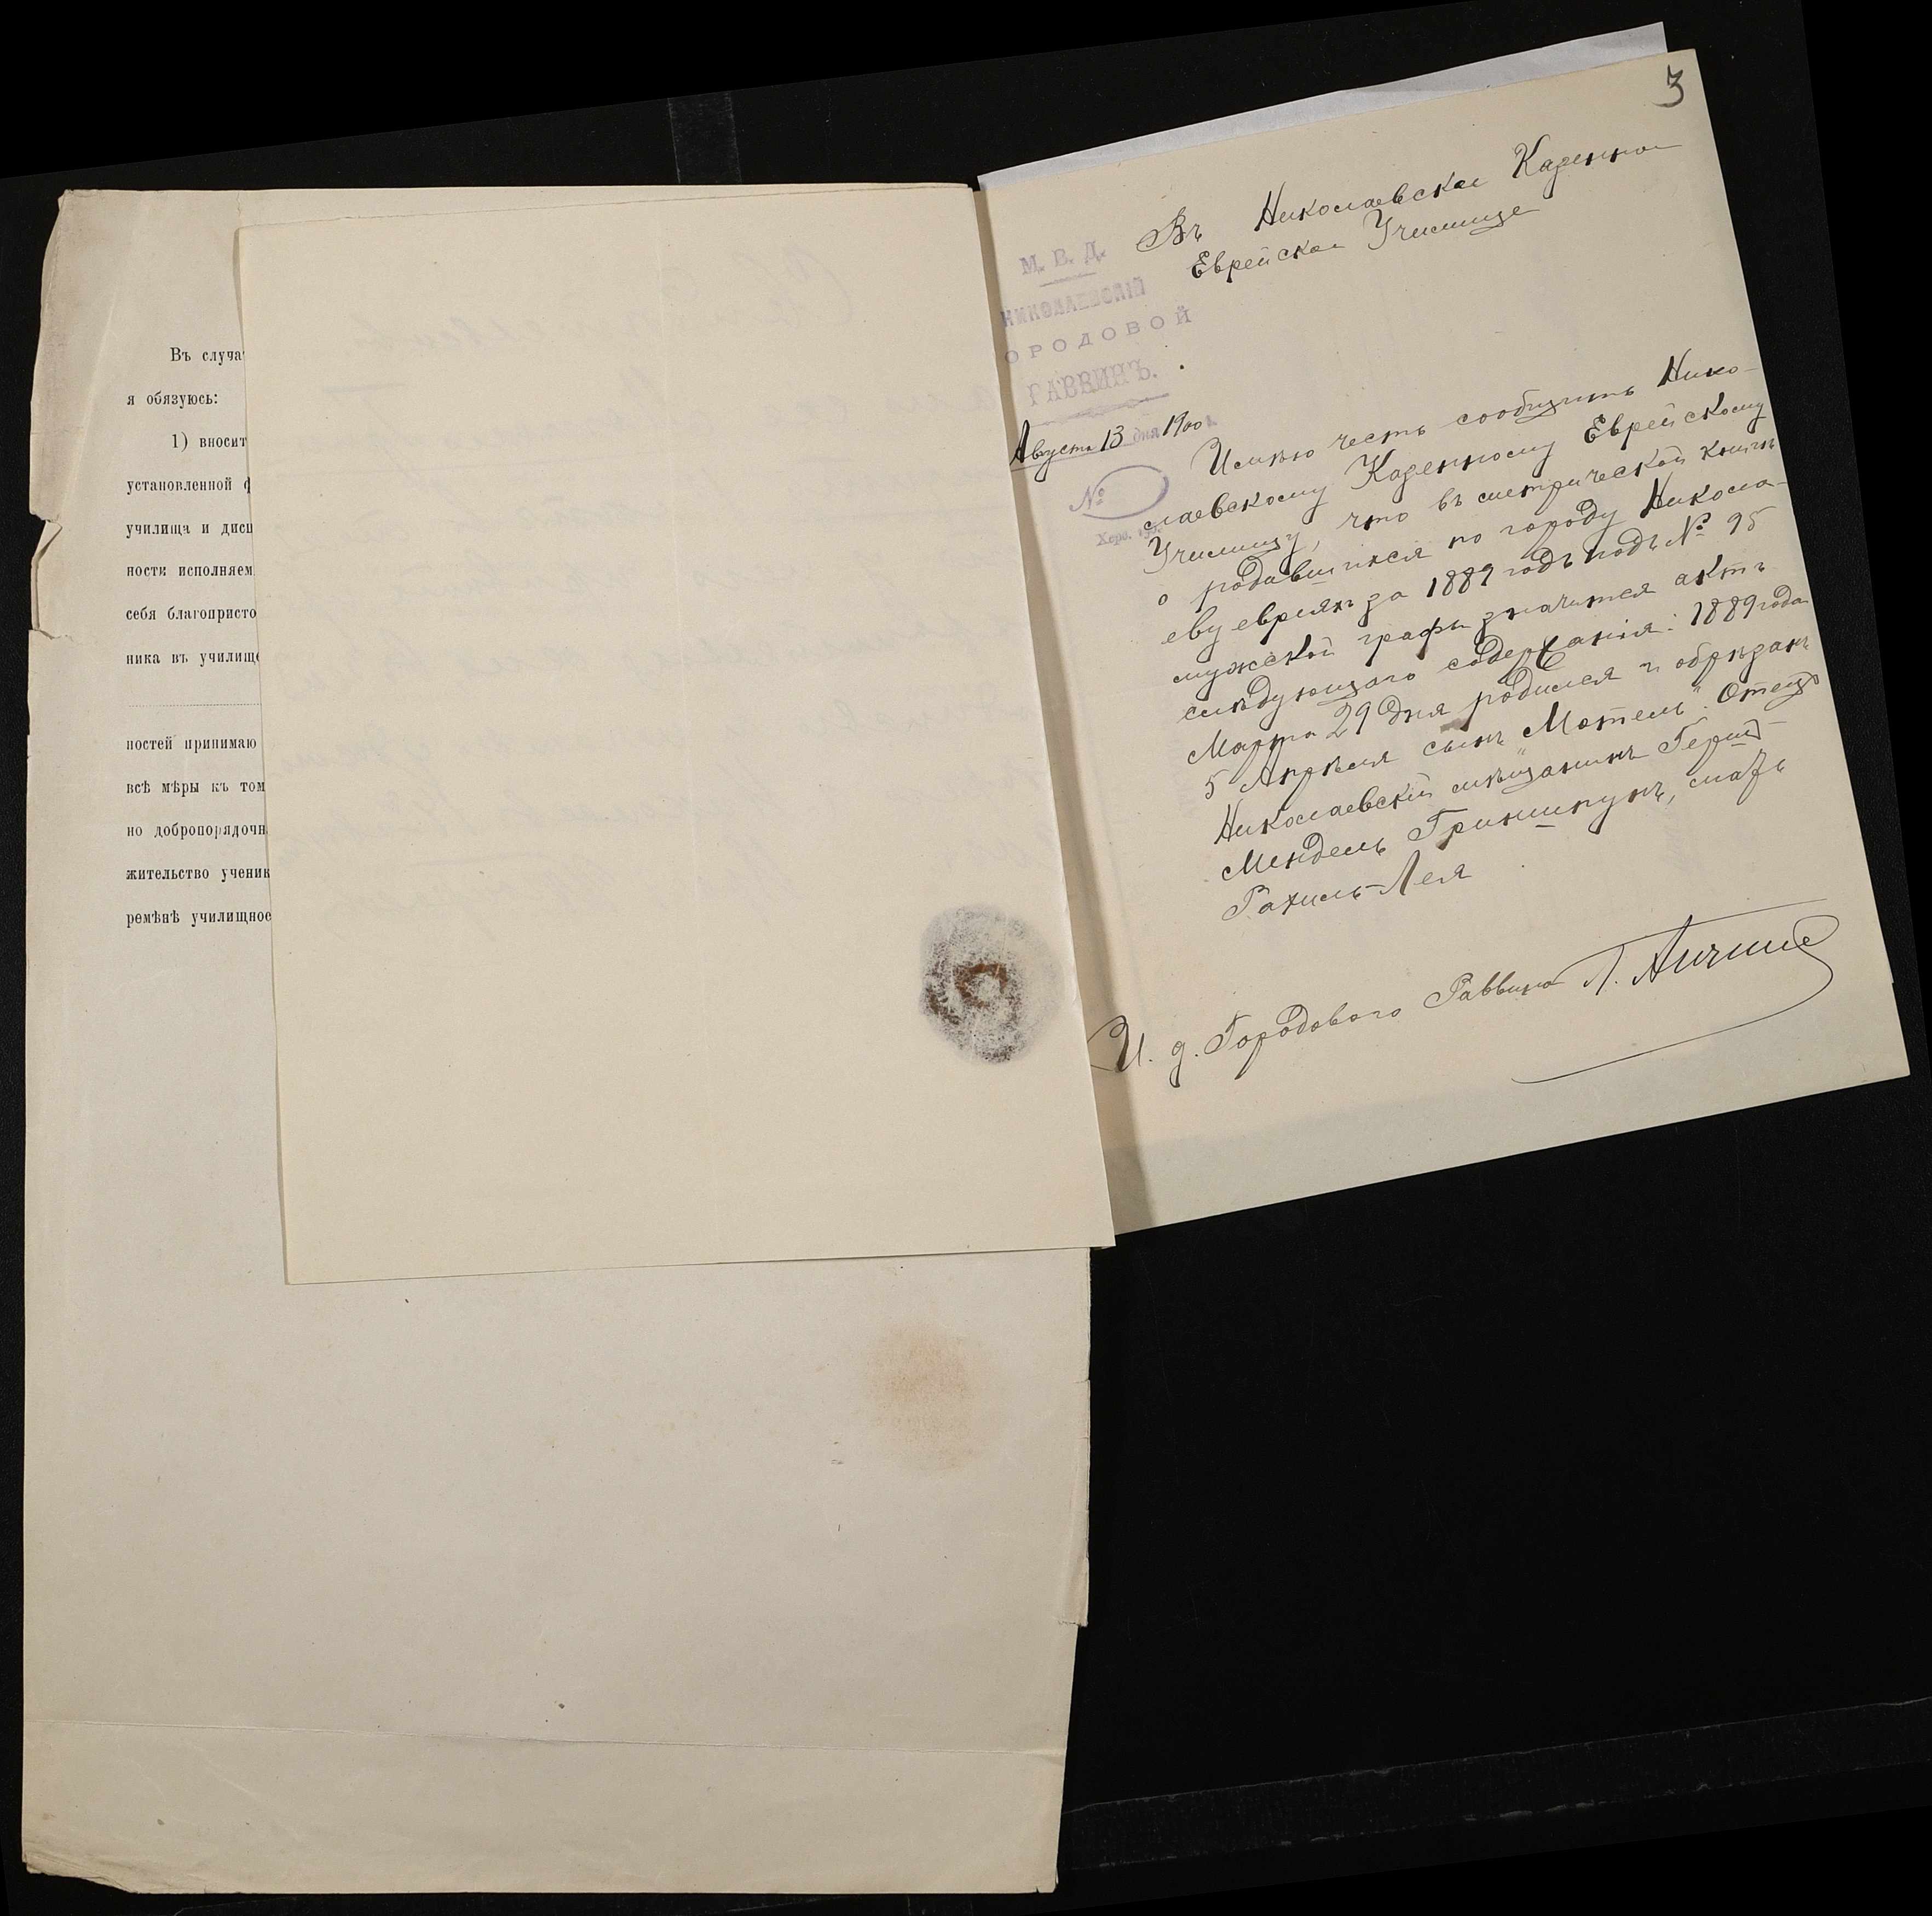 Въ случа
я обязуюсь:
1) вносит
установленной ф
училища и дисц
ности исполняем
себя благопристо
ника въ училище
ностей принимаю
всѣ мѣры къ том
но добропорядочн
жительство ученик
ремѣнѣ училищнос
3
Въ Николаевское Казенное
Еврейское Училище
М. В. Д.
НИКОЛАЕВСКІЙ
ГОРОДОВОЙ
РАВВИНЪ.
Августа 13 дня 1900 г.
№
Херс. губ.
Имѣю честь сообщить Нико-
лаевскому Казенному Еврейскому
Училищу, что въ метрической книгѣ
о родившихся по городу Никола-
еву евреяхъ за 1889 годъ подъ № 95
мужской графы значится актъ
слѣдующаго содержанія: 1889 года
Марта 29 дня родился и обрѣзанъ
5 Апрѣля сынъ „Мотель". Отецъ
Николаевскій мѣщанинъ Герш-
Мендель Гриншпунъ, мать
Рахиль-Лея
И. д. Городового Раввина Л.